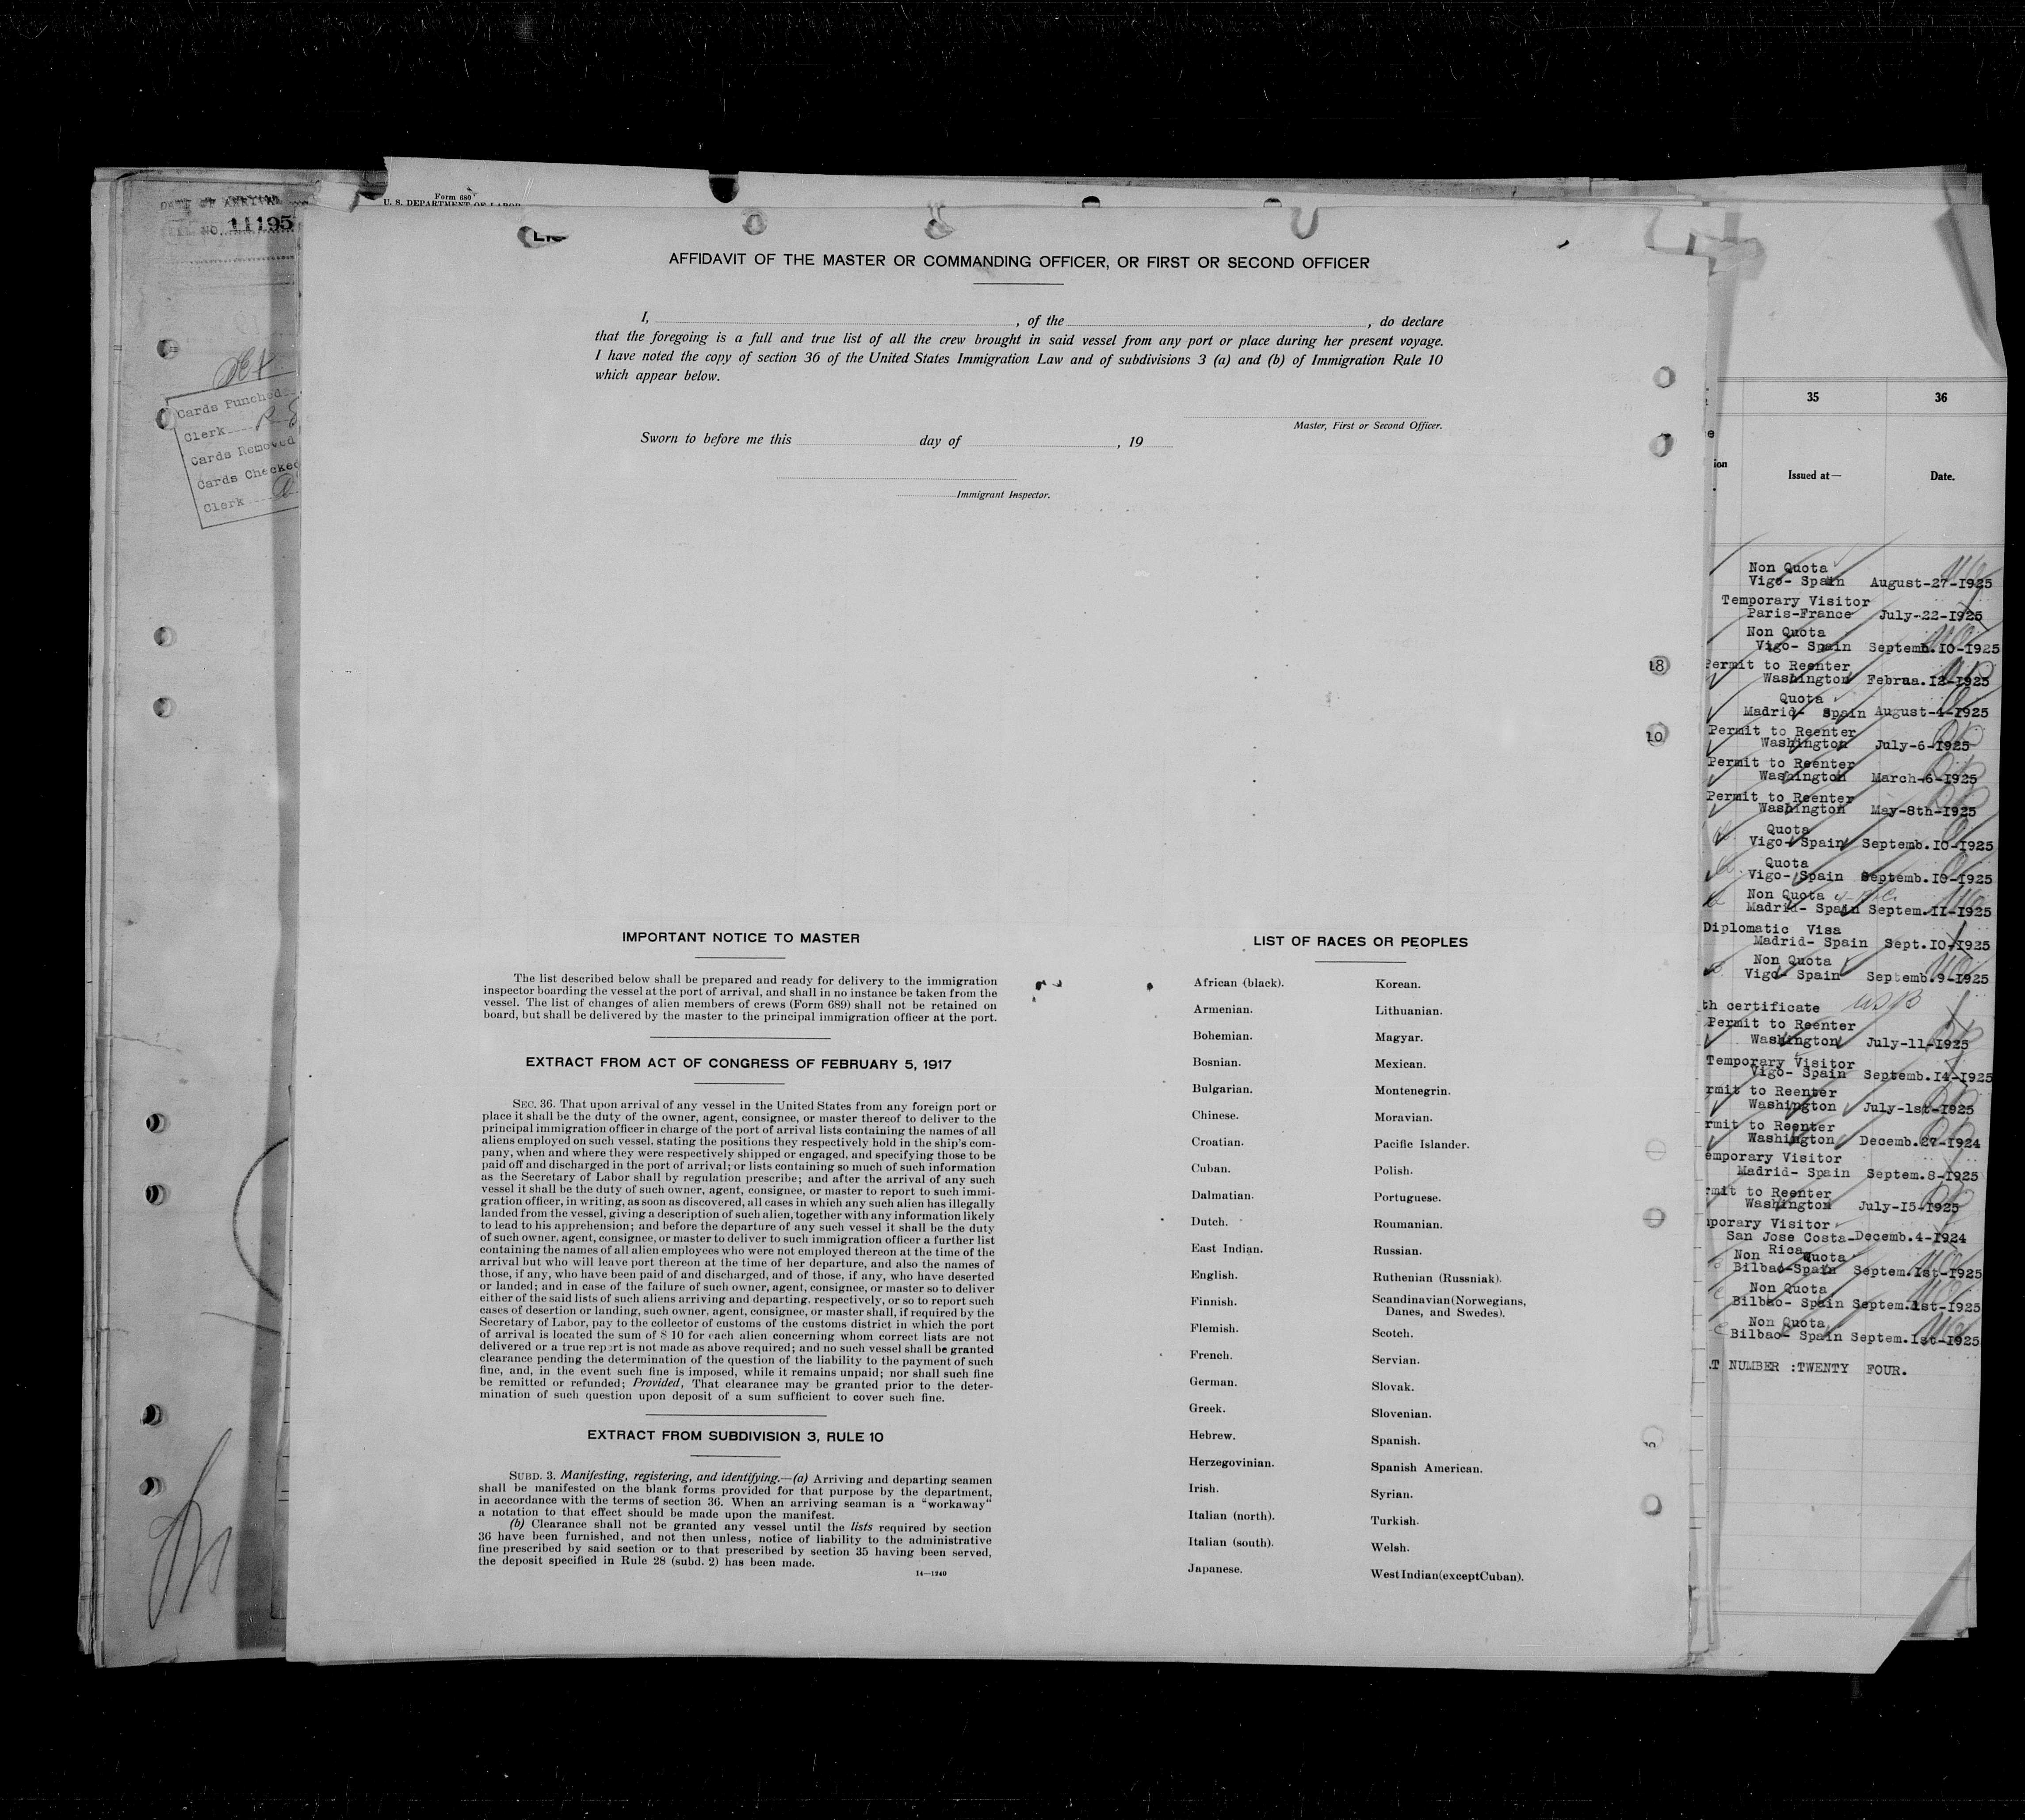 DATE OF ARRIVAL
NO. 11195
Cards Punched
Clerk
Cards Removed
Cards Checked
Clerk
Form 689
U. S. DEPARTMENT OF LABOR
AFFIDAVIT OF THE MASTER OR COMMANDING OFFICER, OR FIRST OR SECOND OFFICER
I, , of the , do declare
that the foregoing is a full and true list of all the crew brought in said vessel from any port or place during her present voyage.
I have noted the copy of section 36 of the United States Immigration Law and of subdivisions 3 (a) and (b) of Immigration Rule 10
which appear below.
Master, First or Second Officer.
Sworn to before me this day of , 19
Immigrant Inspector.
18
10
IMPORTANT NOTICE TO MASTER
The list described below shall be prepared and ready for delivery to the immigration
inspector boarding the vessel at the port of arrival, and shall in no instance be taken from the
vessel. The list of changes of alien members of crews (Form 689) shall not be retained on
board, but shall be delivered by the master to the principal immigration officer at the port.
EXTRACT FROM ACT OF CONGRESS OF FEBRUARY 5, 1917
SEC. 36. That upon arrival of any vessel in the United States from any foreign port or
place it shall be the duty of the owner, agent, consignee, or master thereof to deliver to the
principal immigration officer in charge of the port of arrival lists containing the names of all
aliens employed on such vessel, stating the positions they respectively hold in the ship's com-
pany, when and where they were respectively shipped or engaged, and specifying those to be
paid off and discharged in the port of arrival; or lists containing so much of such information
as the Secretary of Labor shall by regulation prescribe; and after the arrival of any such
vessel it shall be the duty of such owner, agent, consignee, or master to report to such immi-
gration officer, in writing, as soon as discovered, all cases in which any such alien has illegally
landed from the vessel, giving a description of such alien, together with any information likely
to lead to his apprehension; and before the departure of any such vessel it shall be the duty
of such owner, agent, consignee, or master to deliver to such immigration officer a further list
containing the names of all alien employees who were not employed thereon at the time of the
arrival but who will leave port thereon at the time of her departure, and also the names of
those, if any, who have been paid of and discharged, and of those, if any, who have deserted
or landed; and in case of the failure of such owner, agent, consignee, or master so to deliver
either of the said lists of such aliens arriving and departing, respectively, or so to report such
cases of desertion or landing, such owner, agent, consignee, or master shall, if required by the
Secretary of Labor, pay to the collector of customs of the customs district in which the port
of arrival is located the sum of $ 10 for each alien concerning whom correct lists are not
delivered or a true report is not made as above required; and no such vessel shall be granted
clearance pending the determination of the question of the liability to the payment of such
fine, and, in the event such fine is imposed, while it remains unpaid; nor shall such fine
be remitted or refunded; Provided, That clearance may be granted prior to the deter-
mination of such question upon deposit of a sum sufficient to cover such fine.
EXTRACT FROM SUBDIVISION 3, RULE 10
SUBD. 3. Manifesting, registering, and identifying.—(a) Arriving and departing seamen
shall be manifested on the blank forms provided for that purpose by the department,
in accordance with the terms of section 36. When an arriving seaman is a "workaway"
a notation to that effect should be made upon the manifest.
(b) Clearance shall not be granted any vessel until the lists required by section
36 have been furnished, and not then unless, notice of liability to the administrative
fine prescribed by said section or to that prescribed by section 35 having been served,
the deposit specified in Rule 28 (subd. 2) has been made.
14—1240
LIST OF RACES OR PEOPLES
African (black).
Armenian.
Bohemian.
Bosnian.
Bulgarian.
Chinese.
Croatian.
Cuban.
Dalmatian.
Dutch.
East Indian.
English.
Finnish.
Flemish.
French.
German.
Greek.
Hebrew.
Herzegovinian.
Irish.
Italian (north).
Italian (south).
Japanese.
Korean.
Lithuanian.
Magyar.
Mexican.
Montenegrin.
Moravian.
Pacific Islander.
Polish.
Portuguese.
Roumanian.
Russian.
Ruthenian (Russniak).
Scandinavian(Norwegians,
Danes, and Swedes).
Scotch.
Servian.
Slovak.
Slovenian.
Spanish.
Spanish American.
Syrian.
Turkish.
Welsh.
West Indian(except Cuban).
35 36
Issued at— Date.
Non Quota
Vigo- Spain August-27-I925
Temporary Visitor
Paris-France July-22-I925
Non Quota
Vigo- Spain Septemb.I0-I925
Permit to Reenter
Washington Februa.I2-I925
Quota
Madrid- Spain August-4-I925
Permit to Reenter
Washington July-6-I925
Permit to Reenter
Washington March-6-I925
Permit to Reenter
Washington May-8th-I925
Quota
Vigo- Spain Septemb.I0-I925
Quota
Vigo- Spain Septemb.I0-I925
Non Quota
Madrid- Spain Septem.II-I925
Diplomatic Visa
Madrid- Spain Sept.I0-I925
Non Quota
Vigo- Spain Septemb.9-I925
th certificate USB
Permit to Reenter
Washington July-11-I925
Temporary Visitor
Vigo- Spain Septemb.I4-I925
rmit to Reenter
Washington July-1st-I925
rmit to Reenter
Washington Decemb.27-I924
emporary Visitor
Madrid- Spain Septem.8-I925
rmit to Reenter
Washington July-I5-I925
porary Visitor
San Jose Costa-Decemb.4-I924
Rica
Non Quota
Bilbao-Spain Septem.1st-I925
Non Quota
Bilbao- Spain Septem.1st-I925
Non Quota
Bilbao- Spain Septem.Ist-I925
T NUMBER :TWENTY FOUR.